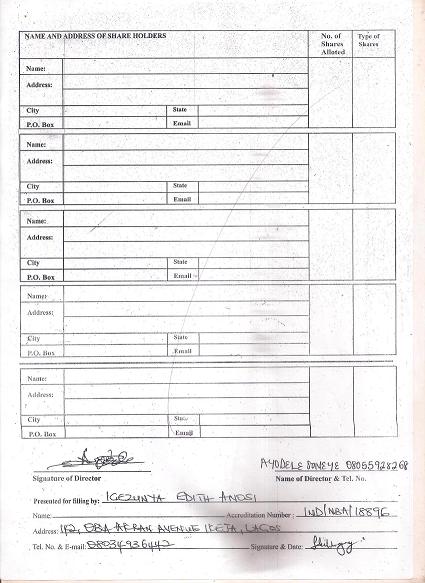 NAME AND ADDRESS OF SHARE HOLDERS No. of Shares Alloted Type of Shares
Name:
Address:
City State
P.O. Box Email
Name:
Address:
City State
P.O. Box Email
Name:
Address:
City State
P.O. Box Email
Name:
Address:
City State
P.O. Box Email
Name:
Address:
City State
P.O. Box Email
AYODELE 08055928268
Signature of Director Name of Director & Tel. No.
Presented for filling by: EDITH
Accreditation Number: IND/NBA/18896
Address: 112, OBA AKRAN AVENUE IKEJA, LAGOS
Tel. No. & E-mail: 08034936442 Signature & Date: